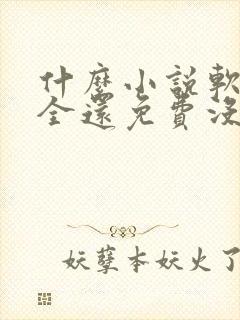 什麼小說軟
全還免費沒
妖孽本妖火了